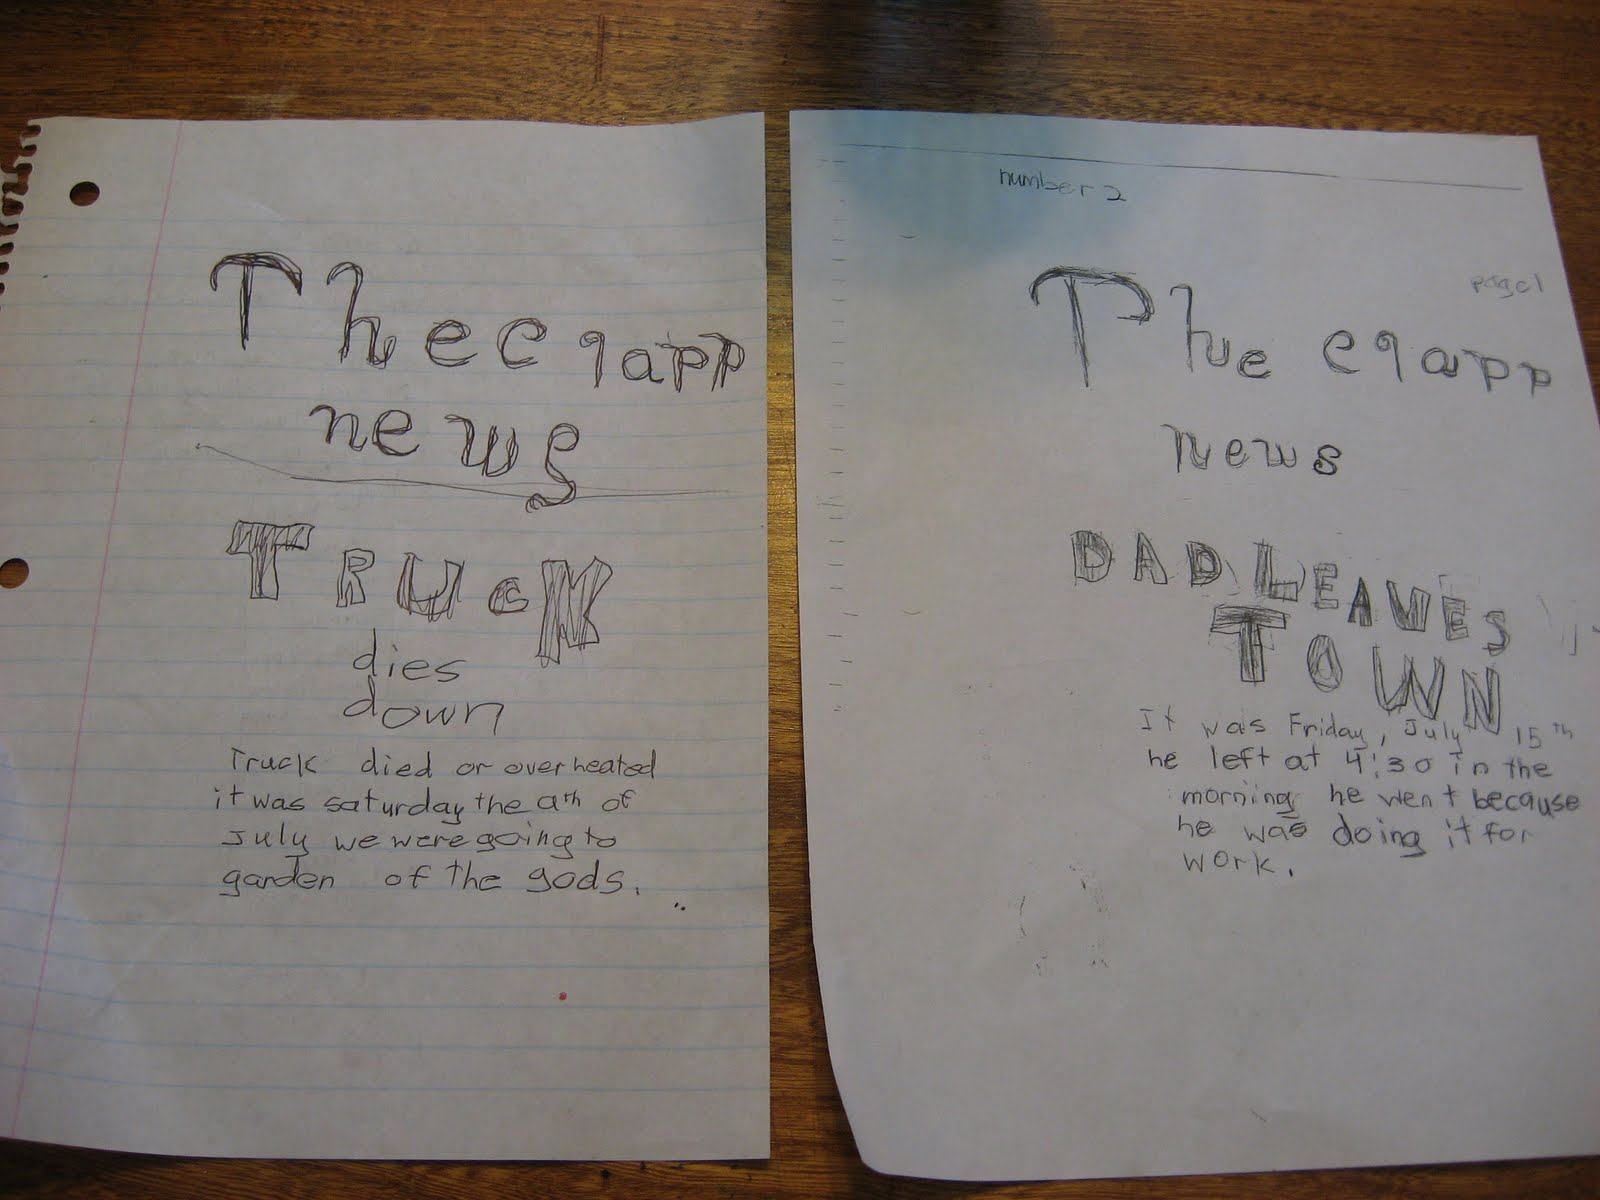 The Clapp
news
TRUCK
dies
down
Truck died or overheated
it was saturday the 9th of
July we were going to
garden of the gods.
number 2
page 1
The Clapp
News
DAD LEAVES
TOWN
It was Friday, July 15th
he left at 4:30 in the
morning he went because
he was doing it for
work.